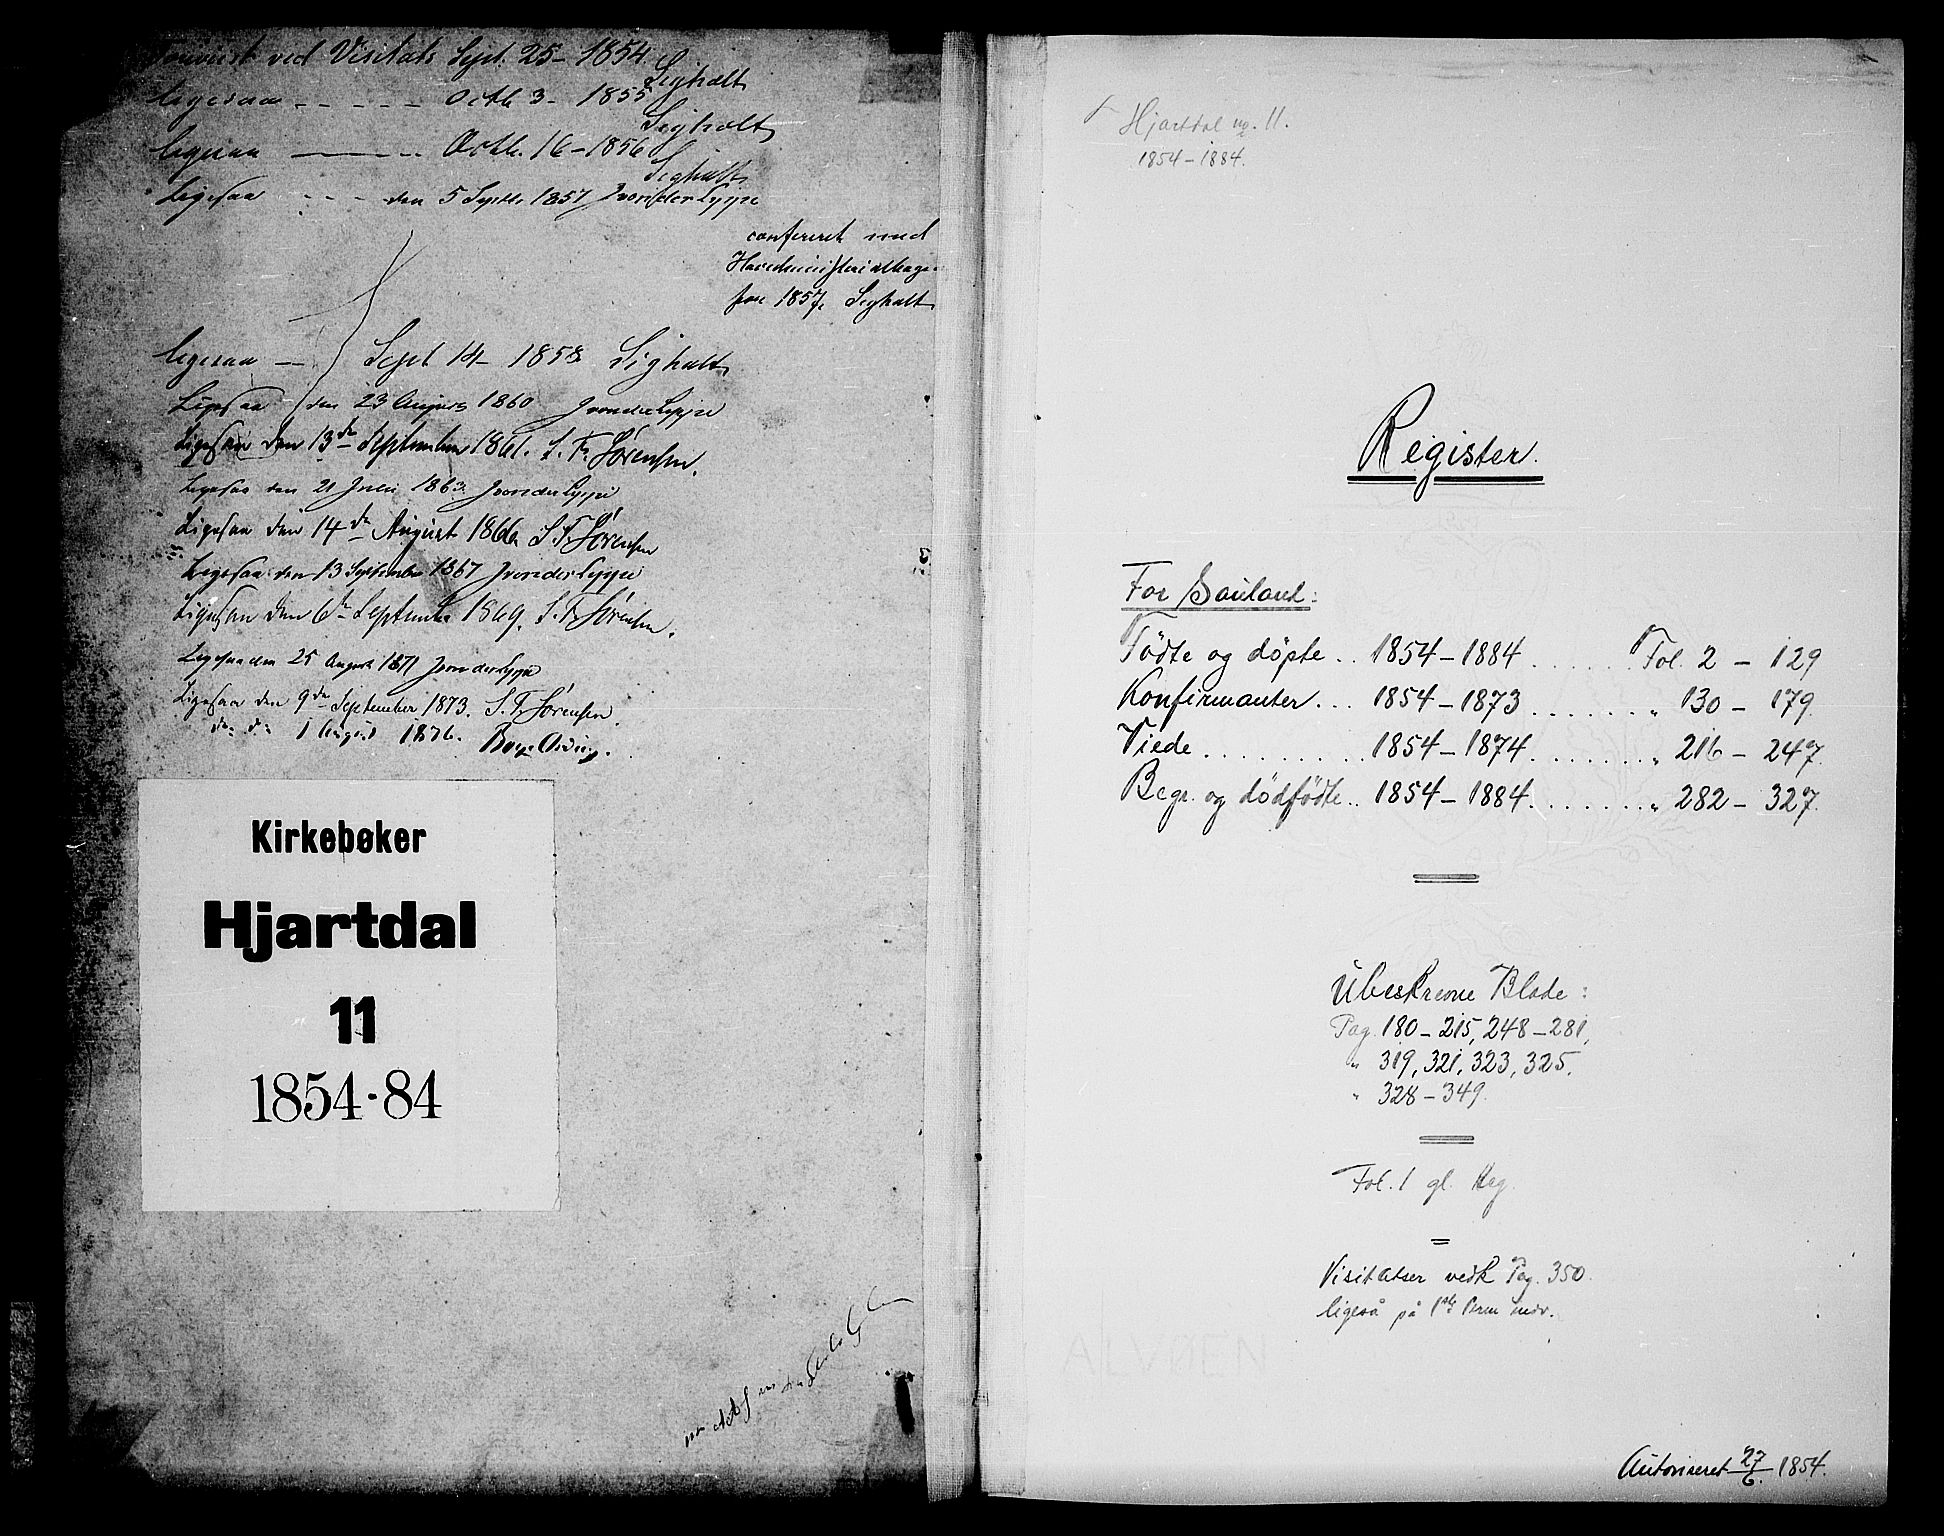 ved Visitats Sept. 25 - 1854.
Sighalt
ligesaa - - - - - Octb. 3 - 1855
Sighalt
ligesaa - - - Octb. 16 - 1856
Sighalt
Ligesaa - - - den 5 Septbr 1857 J von der Lippe
confereret med
Hovedministerialbogen
for 1857. Sighalt
ligesaa — Sept 14 - 1858 Sighalt
Ligesaa den 23 August 1860 J von der Lippe
Ligesaa den 13de September 1861. S. Fr. Sørensen.
Ligesaa den 21 Juli 1863 J von der Lippe
Ligesaa den 14de August 1866 S. Fr. Sørensen
Ligesaa den 13 September 1867 J von der Lippe
Ligesaa den 6te September 1869. S. Fr. Sørensen.
Ligesaa den 25 August 1871 J von der Lippe
Ligesaa den 9de September 1873. S. Fr. Sørensen.
do: do: 1 August 1876.
Kirkebøker
Hjartdal
11
1854-84
Hjartdal no. 11.
1854 - 1884.
Register.
For Sauland:
Fødte og døpte .. 1854 - 1884 . . . . . . Fol. 2 - 129
Konfirmanter ... 1854 - 1873 . . . . . . „ 130 - 179.
Viede . . . . . . . . . 1854 - 1874 . . . . . . . „ 216 - 247.
Begr. og dødfødte .. 1854 - 1884 . . . . . . . „ 282 - 327.
Ubeskrevne Blade:
Pag. 180 - 215, 248 - 281,
„ 319, 321, 323, 325.
„ 328 - 349.
Fol. 1 gl. Reg.
Visitatser vedk Pag. 350.
ligeså på 1ste Perm indv.
ALVØEN
Autoriseret 27/6. 1854.